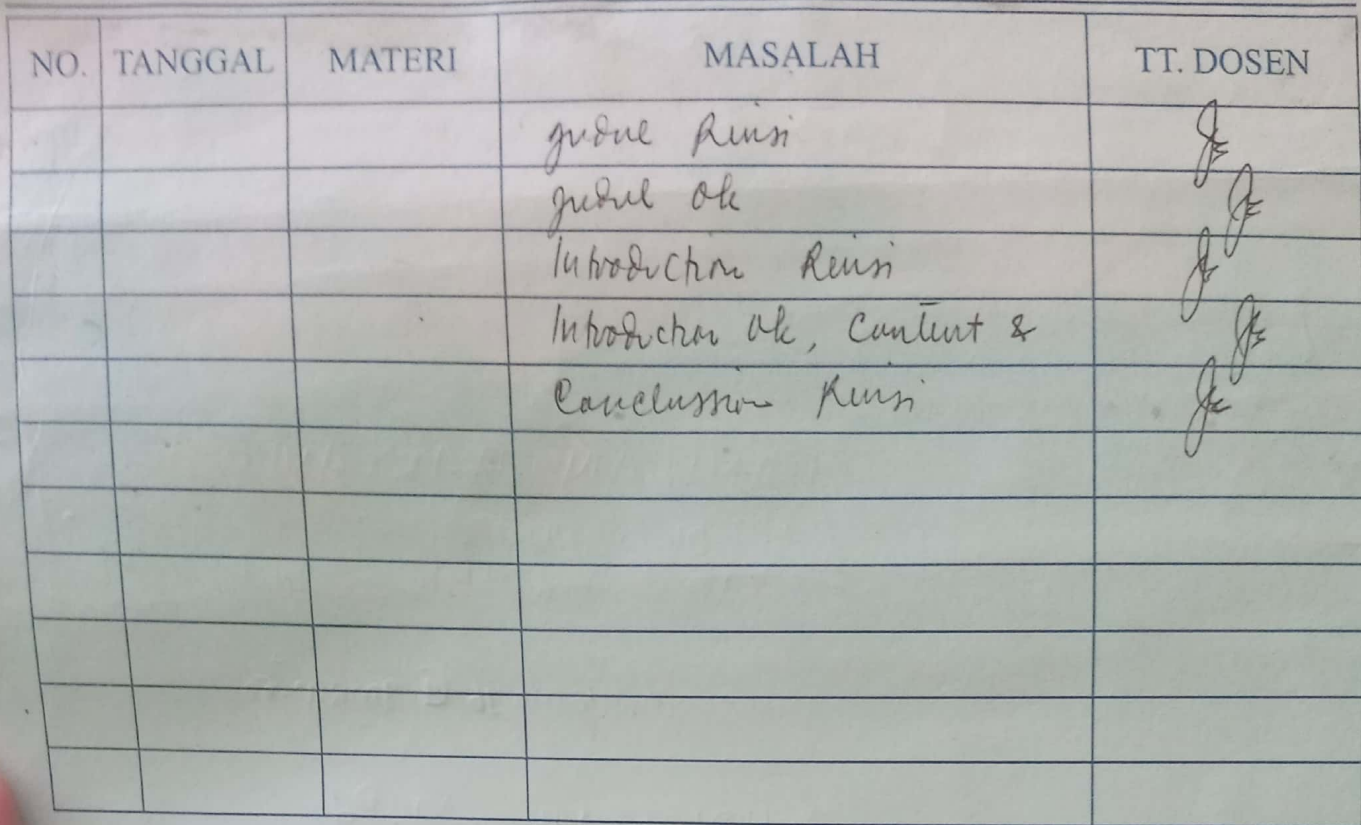 NO. TANGGAL MATERI MASALAH TT. DOSEN
Judul Revisi
Judul Ok
Introduction Revisi
Introduction Ok, Content &
Conclussion Revisi